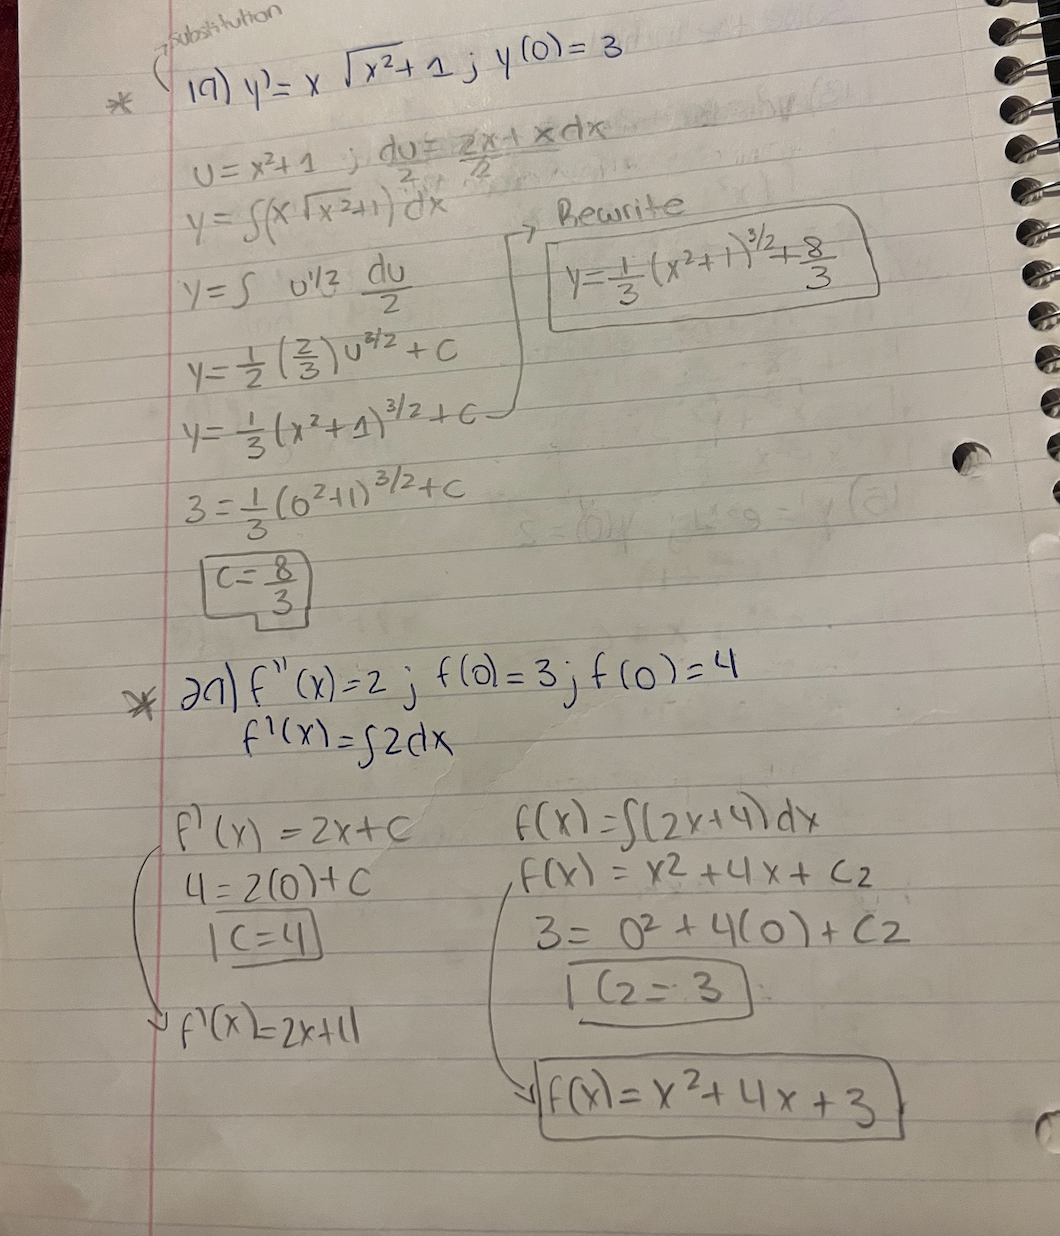 →Substitution
* 19) y' = x √x²+1 ; y(0) = 3
u = x²+1 ; du/2 = 2x+xdx/2
y = ∫(x √x²+1) dx
y = ∫ u^1/2 du/2
y = 1/2 (2/3) u^3/2 + C
y = 1/3 (x²+1)^3/2 + C
→ Rewrite
y = 1/3 (x²+1)^3/2 + 8/3
3 = 1/3 (0²+1)^3/2 + C
C = 8/3
* 29) f''(x) = 2 ; f(0) = 3 ; f(0) = 4
f'(x) = ∫2dx
f'(x) = 2x+C
4 = 2(0)+C
C=4
f'(x) = 2x+4
f(x) = ∫(2x+4)dx
f(x) = x² + 4x + C2
3 = 0² + 4(0) + C2
C2 = 3
f(x) = x² + 4x + 3